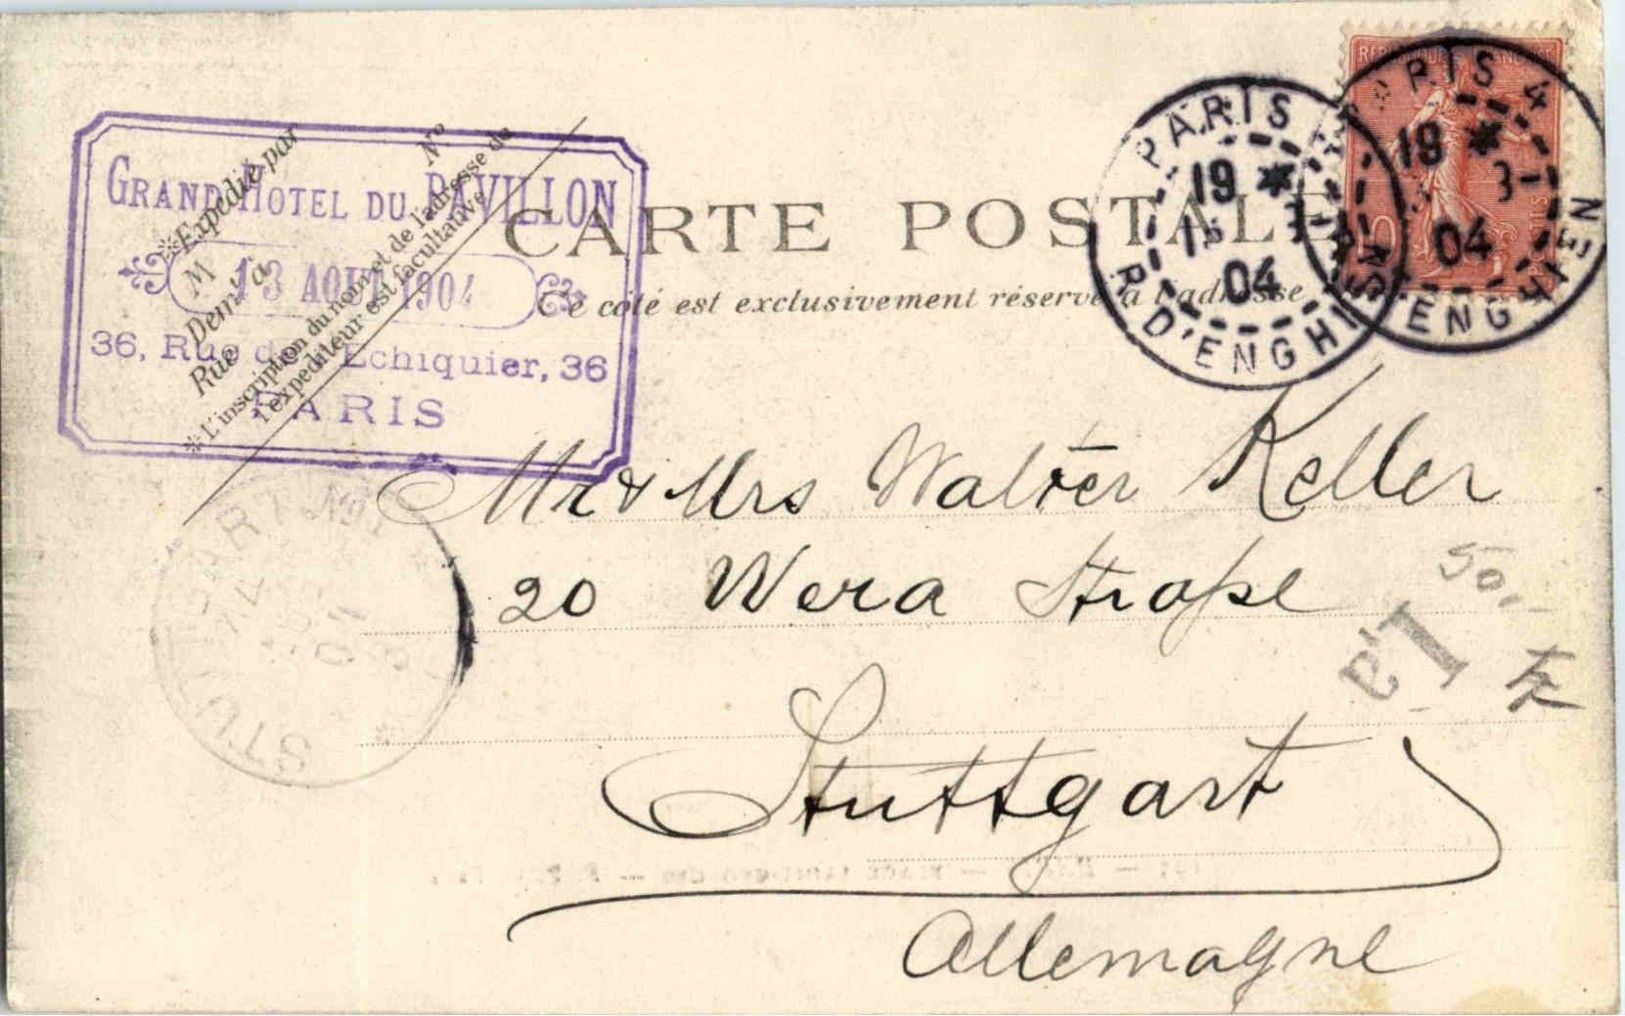 GRAND HOTEL DU PAVILLON
13 AOUT 1904
36, Rue de l'Echiquier, 36
PARIS
✻Expédié par
M
Demt à
Rue
No
✻L'inscription du nom et de l'adresse de
l'expéditeur est facultative
CARTE POSTALE
Ce côté est exclusivement réservé à l'adresse
PARIS
19 ✻
04
R. D'ENGHIEN
PARIS 4
19 ✻
3-
04
R. D'ENGHIEN
Mr & Mrs Walter Keller
20 Wera Straße
Stuttgart
Allemagne
STUTTGART No 1
50,-